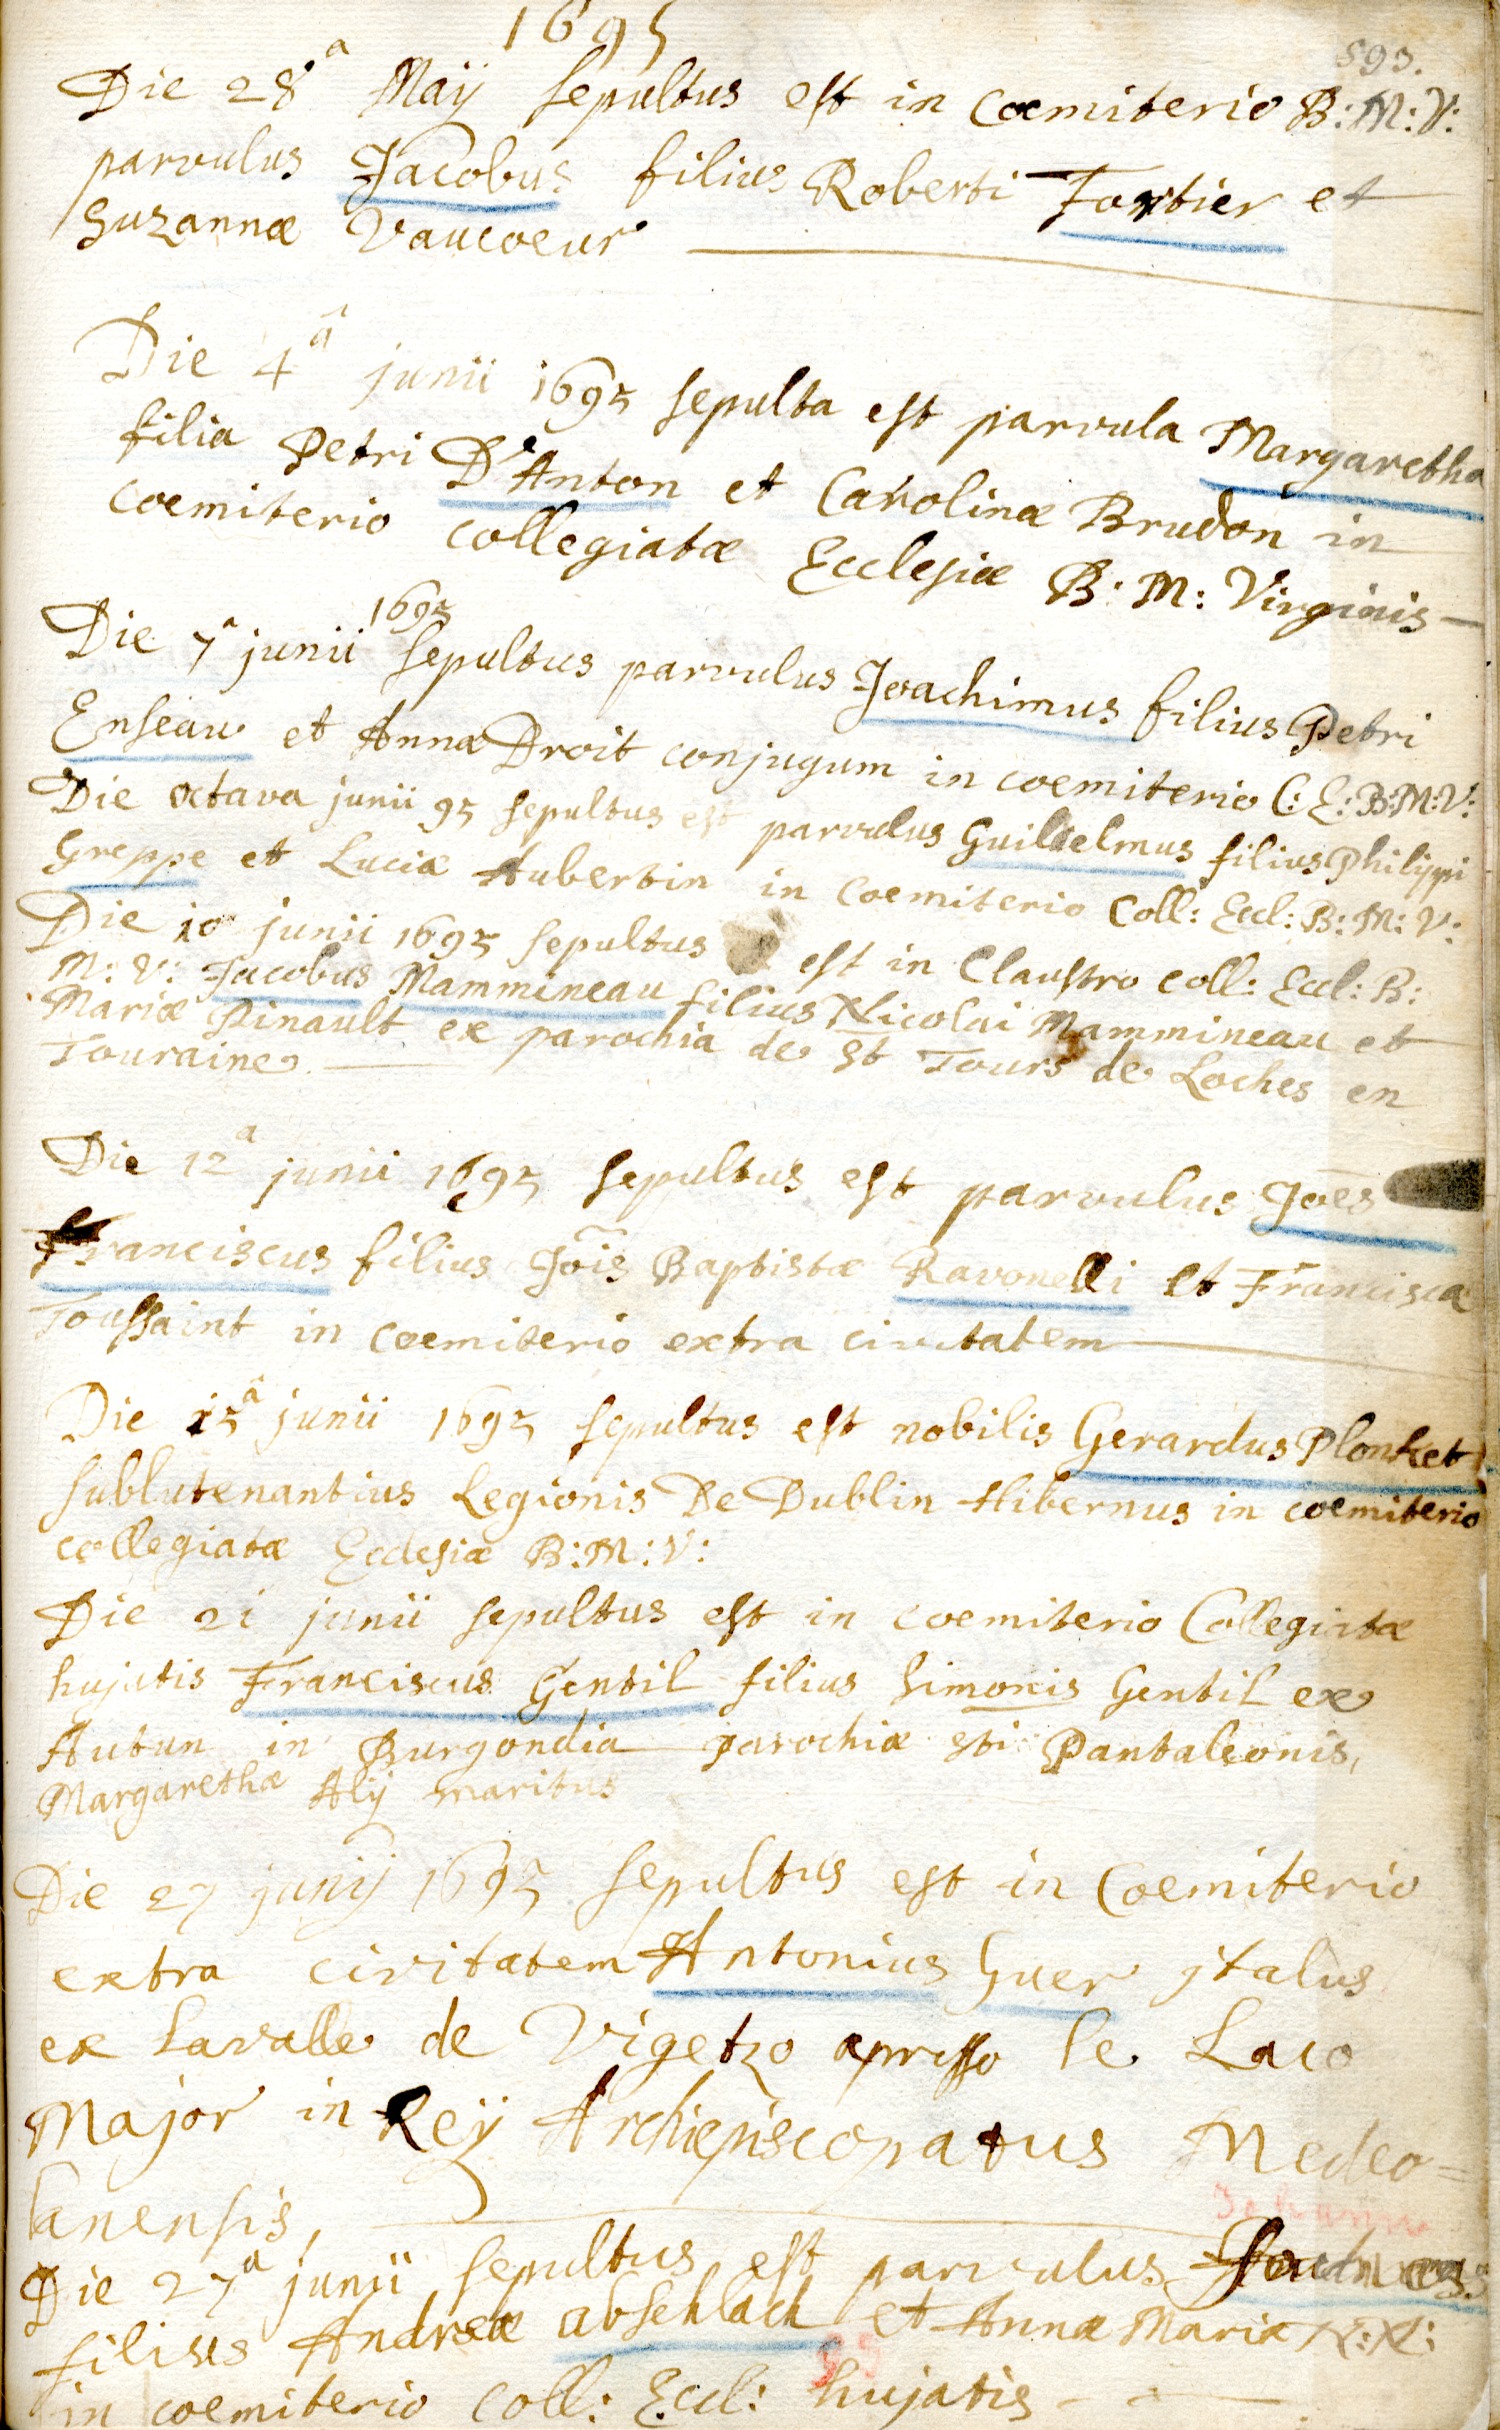 1695
593.
Die 28.a Maÿ sepultus est in Coemiterio B: M: V:
parvulus Jacobus filius Roberti Fortier et
Suzannæ Vaucoeur
Die 4a junii 1695 sepulta est parvula Margaretha
filia Petri D'Anton et Carolinæ Brudon in
coemiterio collegiatæ Ecclesiæ B: M: Virginis
Die 7a junii 1695 sepultus parvulus Joachimus filius Petri
Enseau et Annæ Droit conjugum in coemiterio C: E: B: M: V:
Die octava junii 95 sepultus est parvulus Guillelmus filius Philippi
Greppe et Luciæ Aubertin in Coemiterio Coll: Eccl: B: M: V:
Die 10 junii 1695 sepultus est in Claustro coll: Eccl: B:
M: V: Jacobus Mammineau filius Nicolai Mammineau et
Mariæ Pinault ex parochia de St Tours de Loches en
Touraine.
Die 12a junii 1695 sepultus est parvulus Joēs
Franciscus filius Jōis Baptistæ Ravonelli et Francisca
Toussaint in coemiterio extra civitatem
Die 15a junii 1695 sepultus est nobilis Gerardus Plonket
sublutenantius Legionis De Dublin Hibernus in coemiterio
collegiatæ Ecclesiæ B: M: V:
Die 21 junii sepultus est in coemiterio Collegiatæ
hujatis Franciscus Gentil filius Simonis Gentil ex
Autun in Burgondia parochiæ sti Pantaleonis,
Margarethæ Alÿ maritus
Die 27 junij 1695 sepultus est in Coemiterio
extra civitatem Antonius Guer jtalus
ex Lavalle de Vigetzo apresso le Laco
Major in Reÿ Archiepiscopatus Medeo=
lanensis,
Die 27a junii sepultus est parvulus
filius Andreæ abschlach et Annæ Mariæ N: N:
in coemiterio coll: Eccl: hujatis